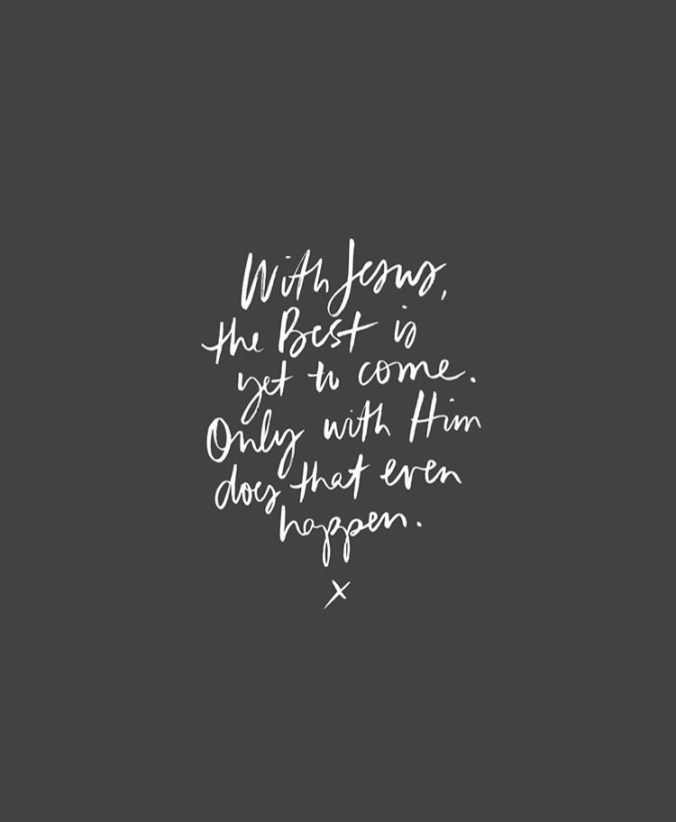 With Jesus,
the Best is
yet to come.
Only with Him
does that even
happen.
x